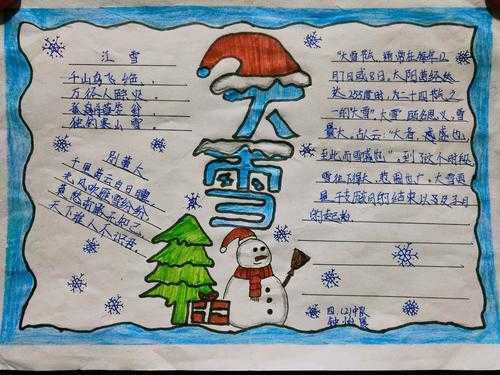 江雪
千山鸟飞绝，
万径人踪灭。
孤舟蓑笠翁，
独钓寒雪
别董大
千里黄云白日曛
北风吹雁雪纷纷
莫愁前路无知己
天下谁人不识君
大雪
"大雪"节气，通常在每年12
月7日或8日，太阳黄经
达255度时，为二十四节气之
一的"大雪"。大雪，顾名思义，雪
量大。古人云："大者，盛也，
至此而雪盛也"。到这个时段
雪往往下得大、范围也广。大雪
是干支历月的结束以及子月
的起始。
四.(2)中队